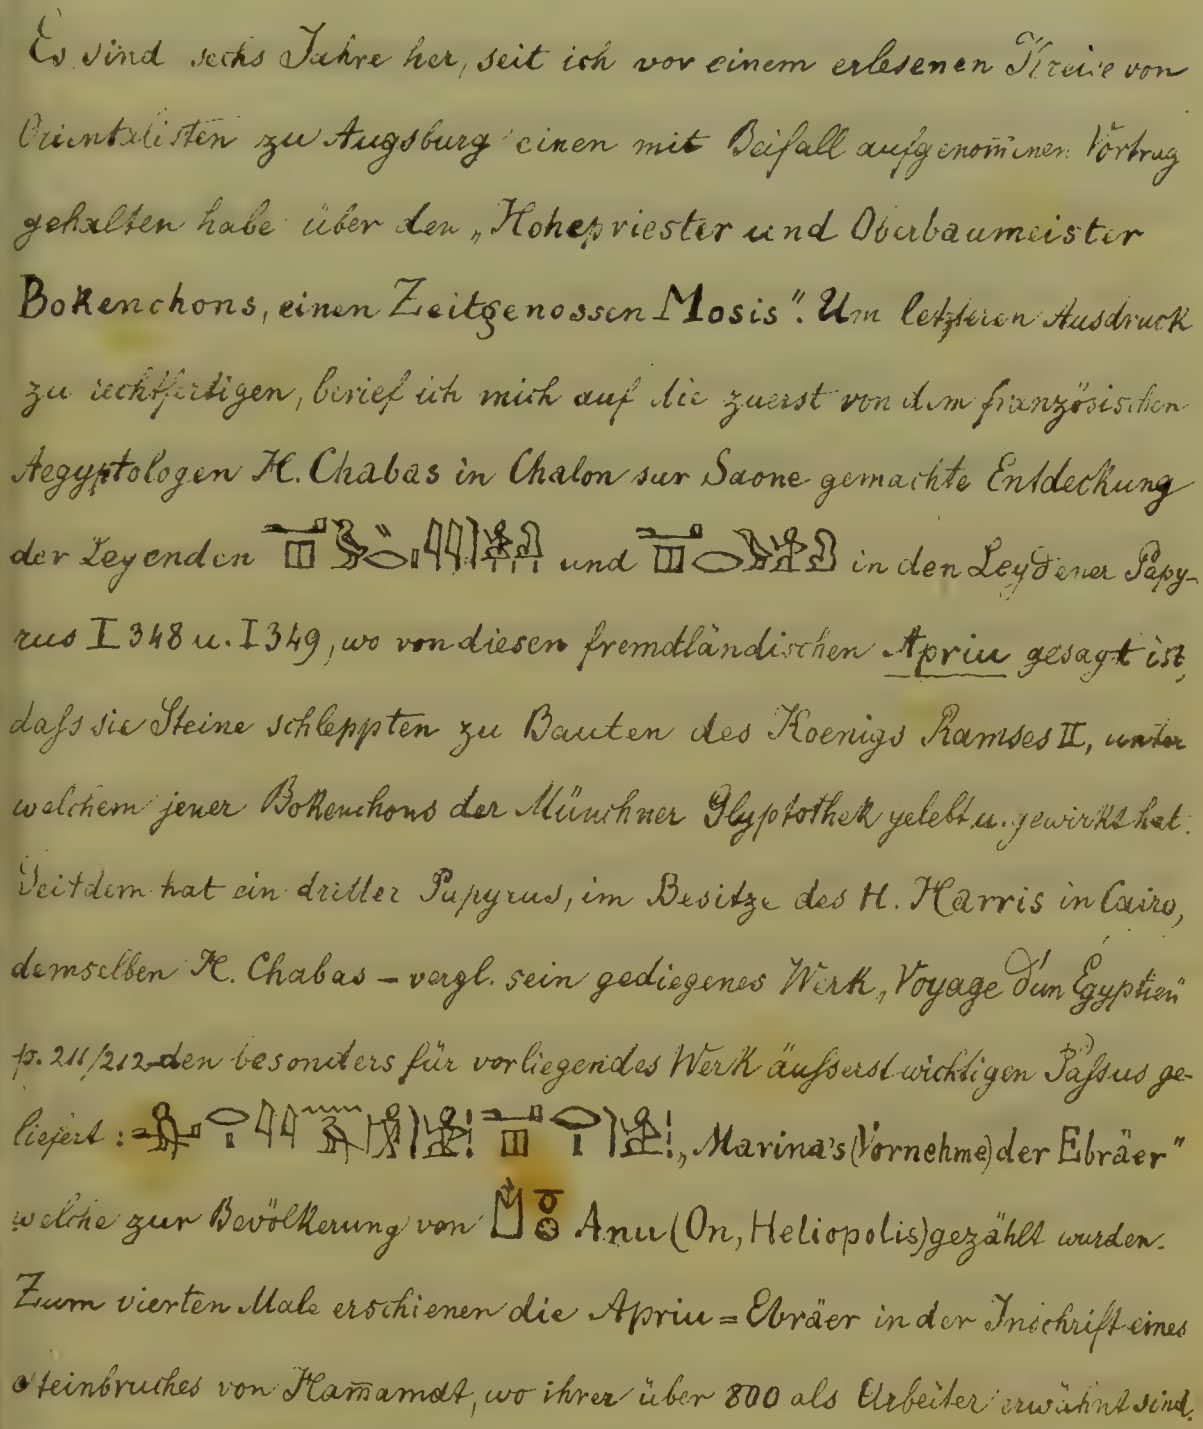 Es sind sechs Jahre her, seit ich vor einem erlesenen Kreise von
Orientalisten zu Augsburg einen mit Beifall aufgenom̄menen Vortrag
gehalten habe über den „Hohepriester und Oberbaumeister
Bokenchons, einen Zeitgenossen Mosis". Um letzteren Ausdruck
zu rechtfertigen, berief ich mich auf die zuerst von dem französischen
Aegyptologen H. Chabas in Chalon sur Saone gemachte Entdeckung
der Legenden und in den Leydener Papy-
rus I 348 u. I 349, wo von diesen fremdländischen Apriu gesagt ist,
daſs sie Steine schleppten zu Bauten des Koenigs Ramses II, unter
welchem jener Bokenchons der Münchner Glyptothek gelebt u. gewirkt hat.
Seitdem hat ein dritter Papyrus, im Besitze des H. Harris in Cairo,
demselben H. Chabas – vergl. sein gediegenes Werk „Voyage d'un Égyptien"
p. 211/212 – den besonders für vorliegendes Werk äuſserst wichtigen Paſsus ge-
liefert: „Marina's (Vornehme) der Ebräer"
welche zur Bevölkerung von Anu (On, Heliopolis) gezählt wurden.
Zum vierten Male erschienen die Apriu = Ebräer in der Inschrift eines
Steinbruches von Ham̄amât, wo ihrer über 800 als Arbeiter erwähnt sind.